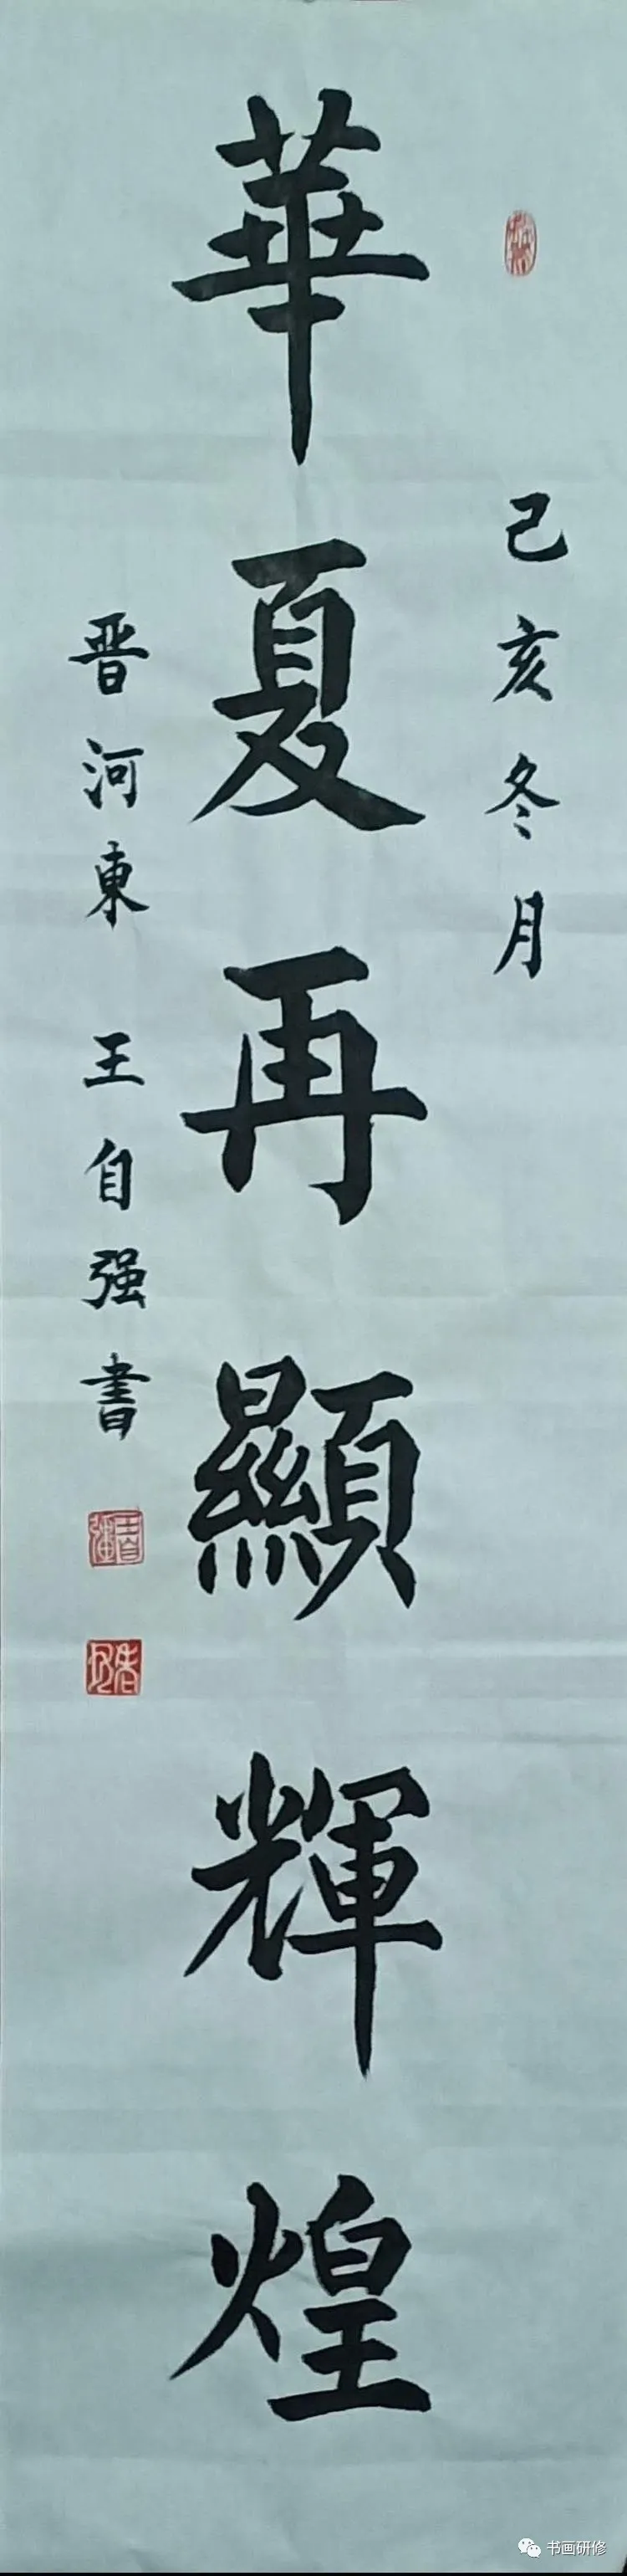 己亥冬月
華夏再顯輝煌
晋河東 王自强書
书画研修